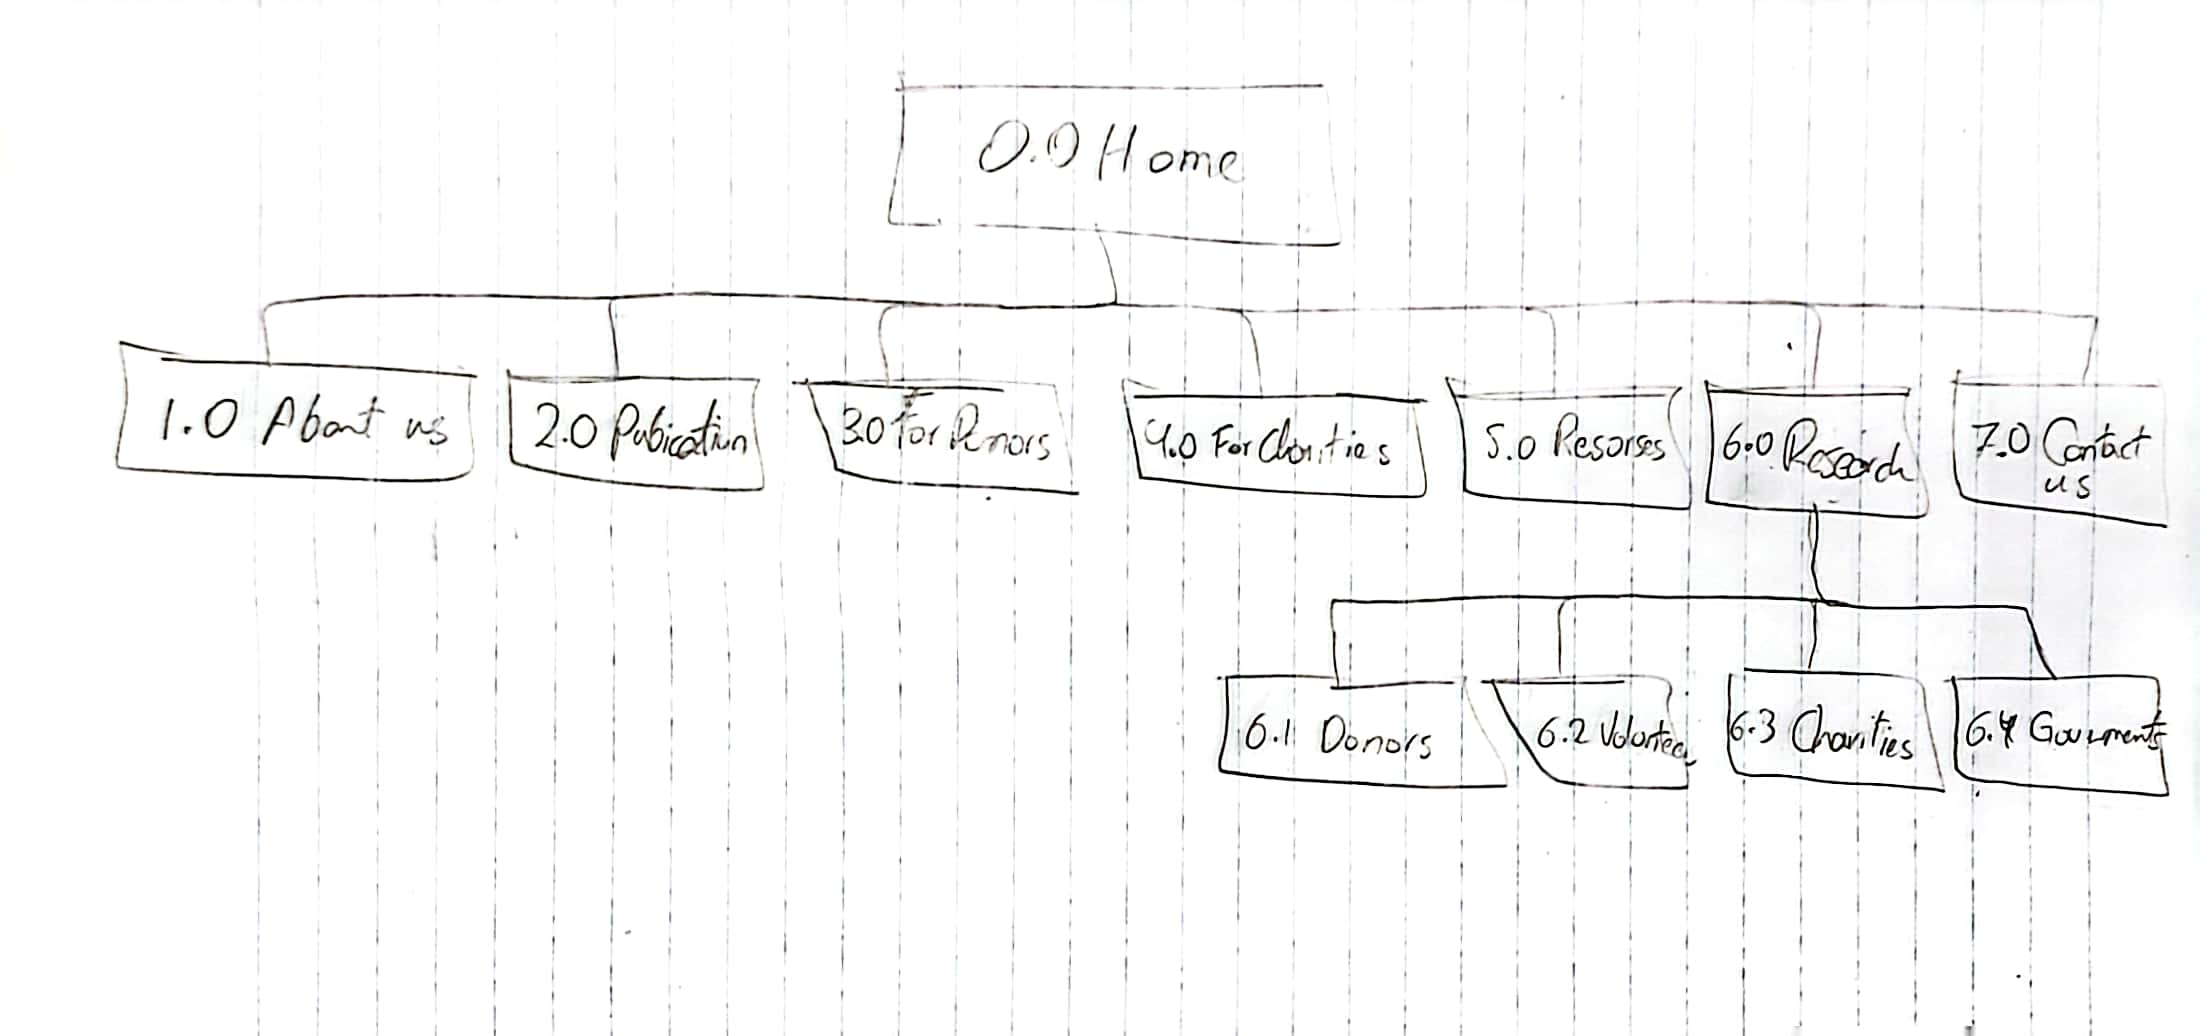 0.0 Home
1.0 About us
2.0 Pubication
3.0 For Donors
4.0 For Charities
5.0 Resorses
6.0 Research
7.0 Contact
us
6.1 Donors
6.2 Volorteer
6.3 Charities
6.4 Gouvments